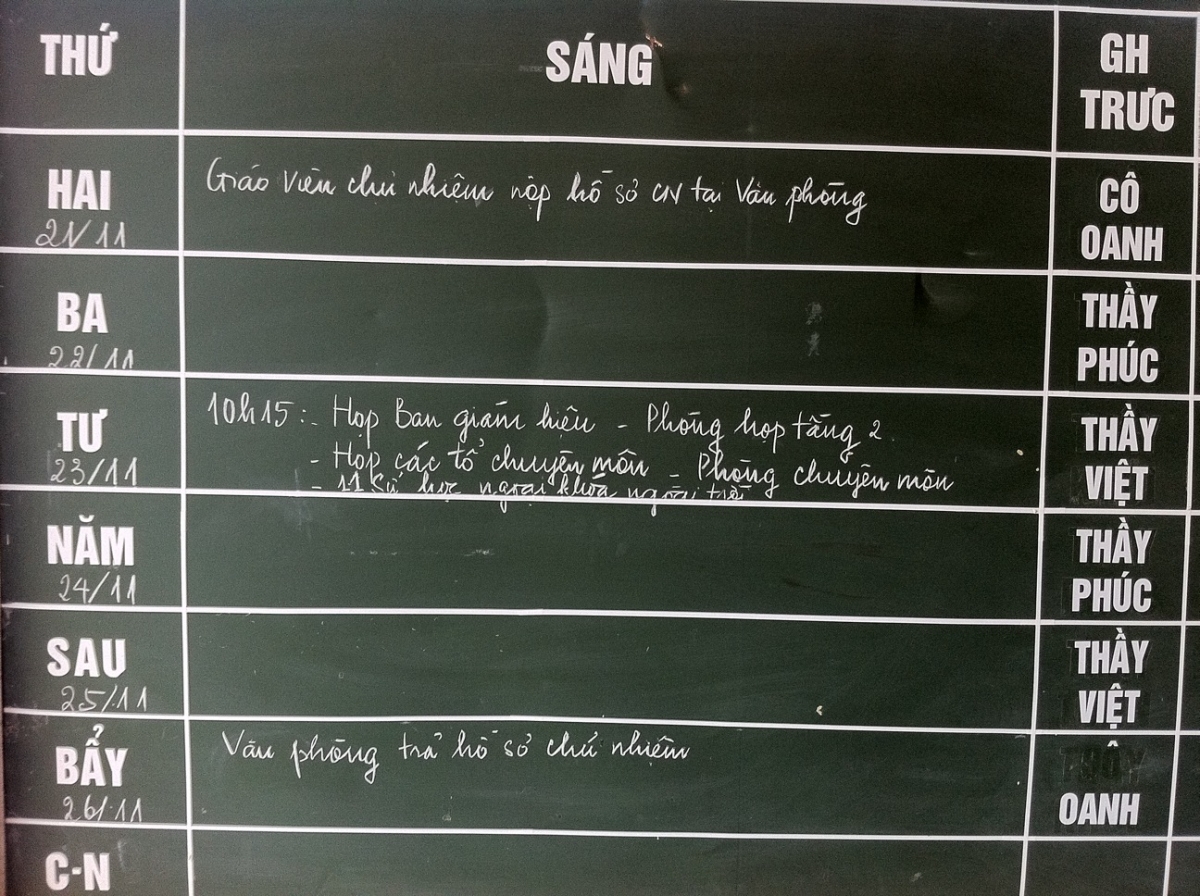 THỨ
SÁNG
GH
TRƯC
HAI
21/11
Giáo viên chủ nhiệm nộp hồ sơ CN tại Văn phòng
CÔ
OANH
BA
22/11
THẦY
PHÚC
TƯ
23/11
10h15: - Họp Ban giám hiệu - Phòng họp tầng 2
- Họp các tổ chuyên môn - Phòng chuyên môn
- 11 Sử học ngoại khoá ngoài trời
THẦY
VIỆT
NĂM
24/11
THẦY
PHÚC
SAU
25/11
THẦY
VIỆT
BẨY
26/11
Văn phòng trả hồ sơ chủ nhiệm
OANH
C-N